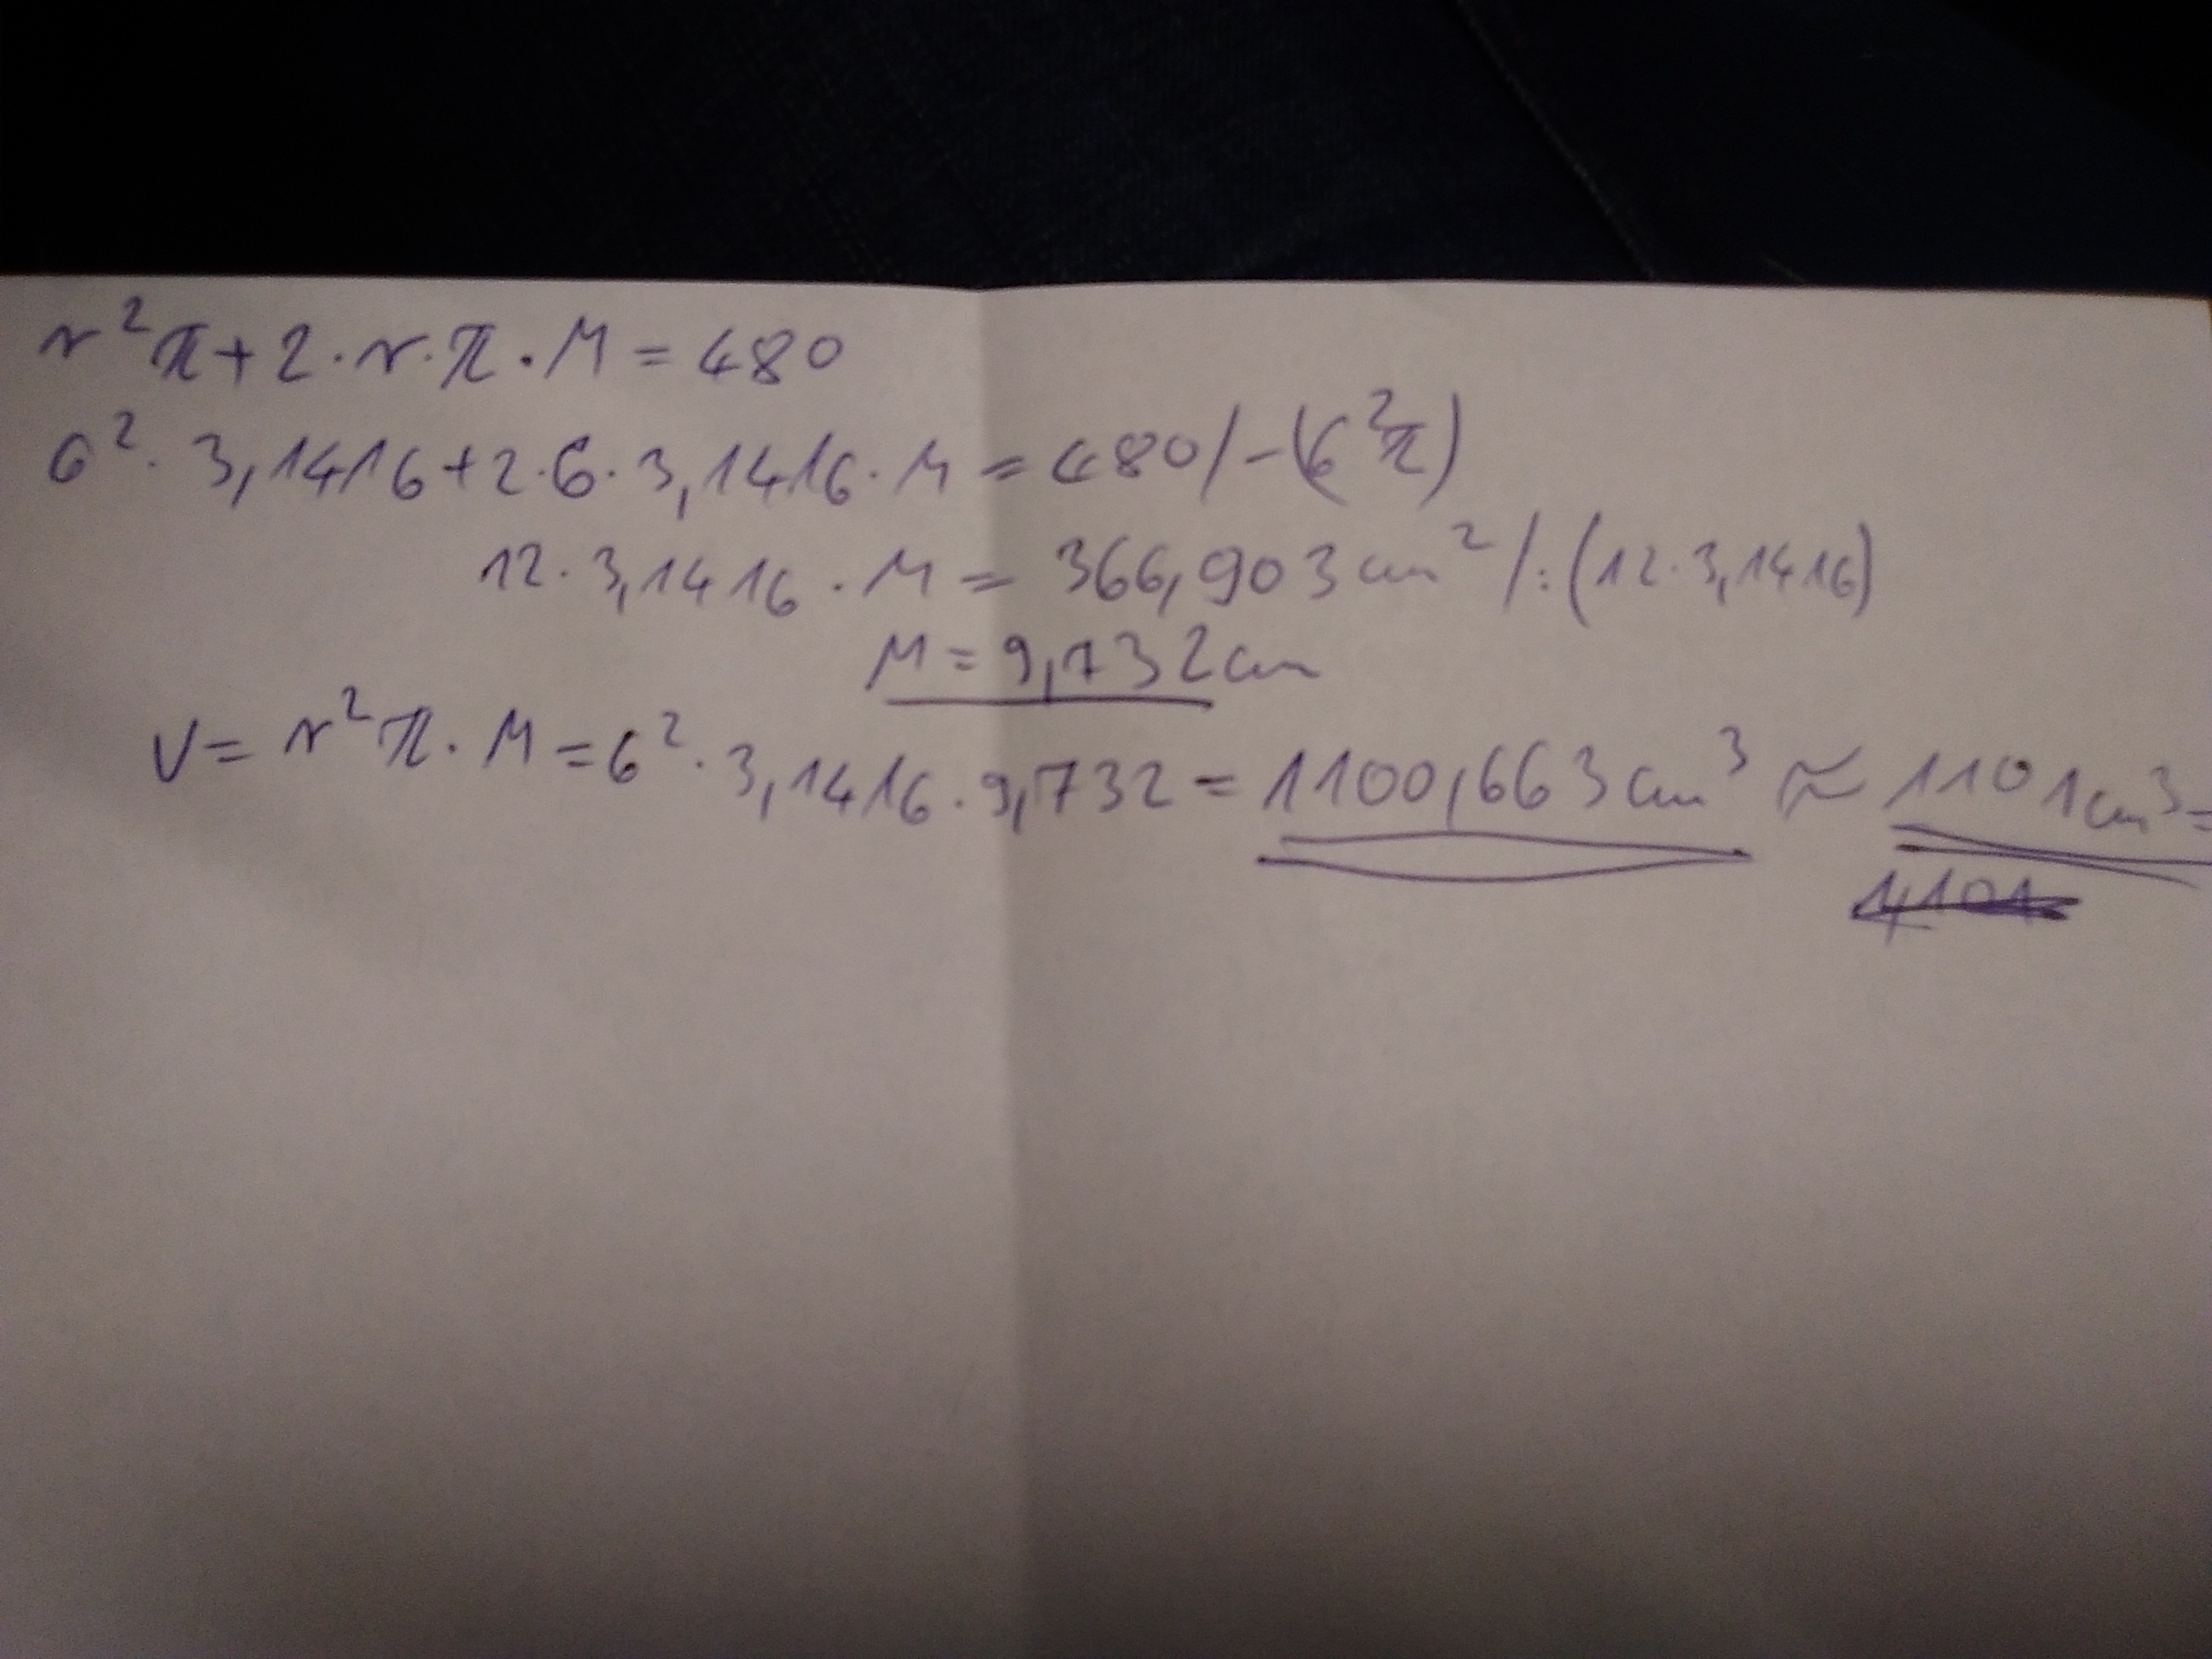 r²π+2·r·π·M=480
6²·3,1416+2·6·3,1416·M=480/-(6²π)
12·3,1416·M=366,903cm²/:(12·3,1416)
M=9,732cm
V=r²π·M=6²·3,1416·9,732=1100,663cm³≈1101cm³=
1,101